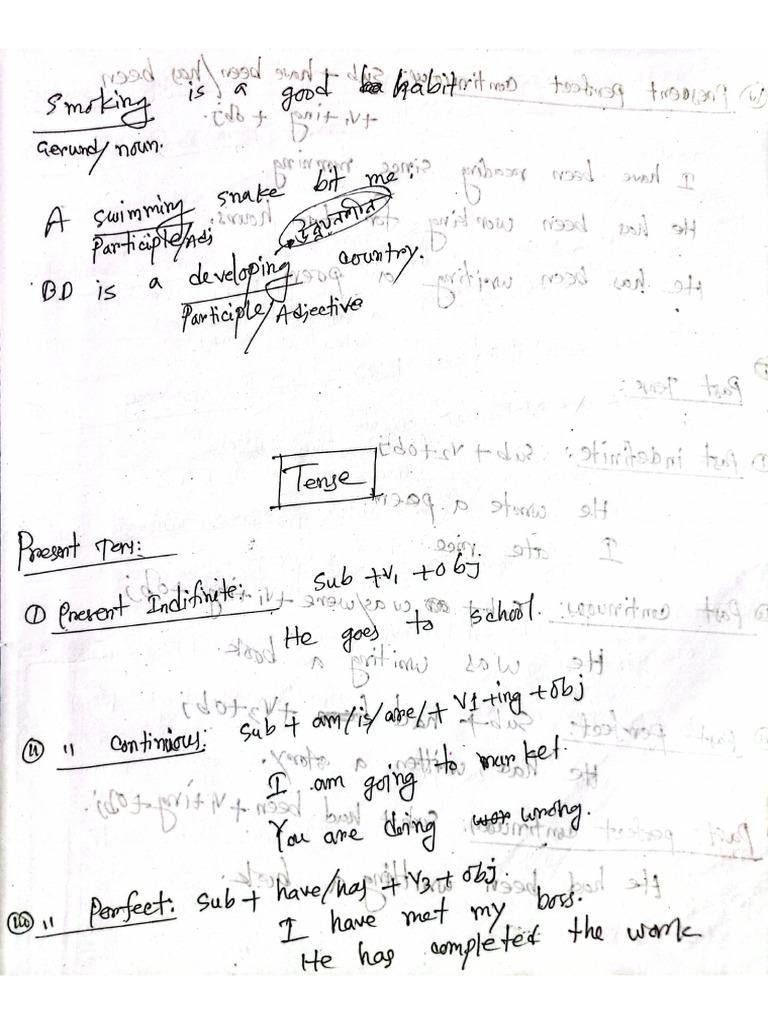 Smoking is a good habit
Gerund/noun.
A swimming snake bit me.
Participle/Adj
উন্নয়নশীল
BD is a developing country.
Participle/Adjective
Tense
Present Tens:
① Present Indifinite: Sub + V₁ + Obj
He goes to school.
② " continious: Sub + am/is/are/ + V1 + ing + Obj
I am going to market.
You are doing wrong.
③ " Perfect: Sub + have/has + V₃ + obj.
I have met my boss.
He has completed the work